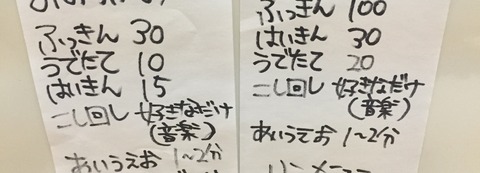 ふっきん 30
うでたて 10
はいきん 15
こし回し 好きなだけ
(音楽)
あいうえお 1~2分
ふっきん 100
はいきん 30
うでたて 20
こし回し 好きなだけ
(音楽)
あいうえお 1~2分